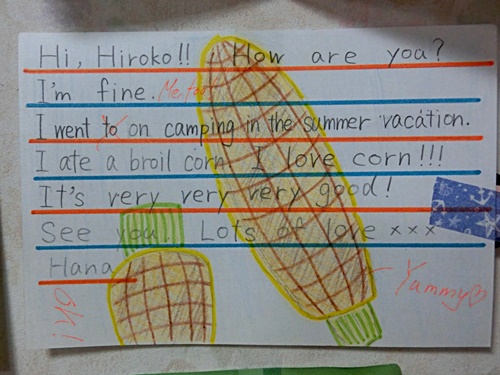 Hi, Hiroko!! How are you?
I'm fine. Me too
I went to on camping in the summer vacation.
I ate a broil corn. I love corn!!!
It's very very very good!
See you!! Lots of love xxx
Hana!
Yummy♡
oh!